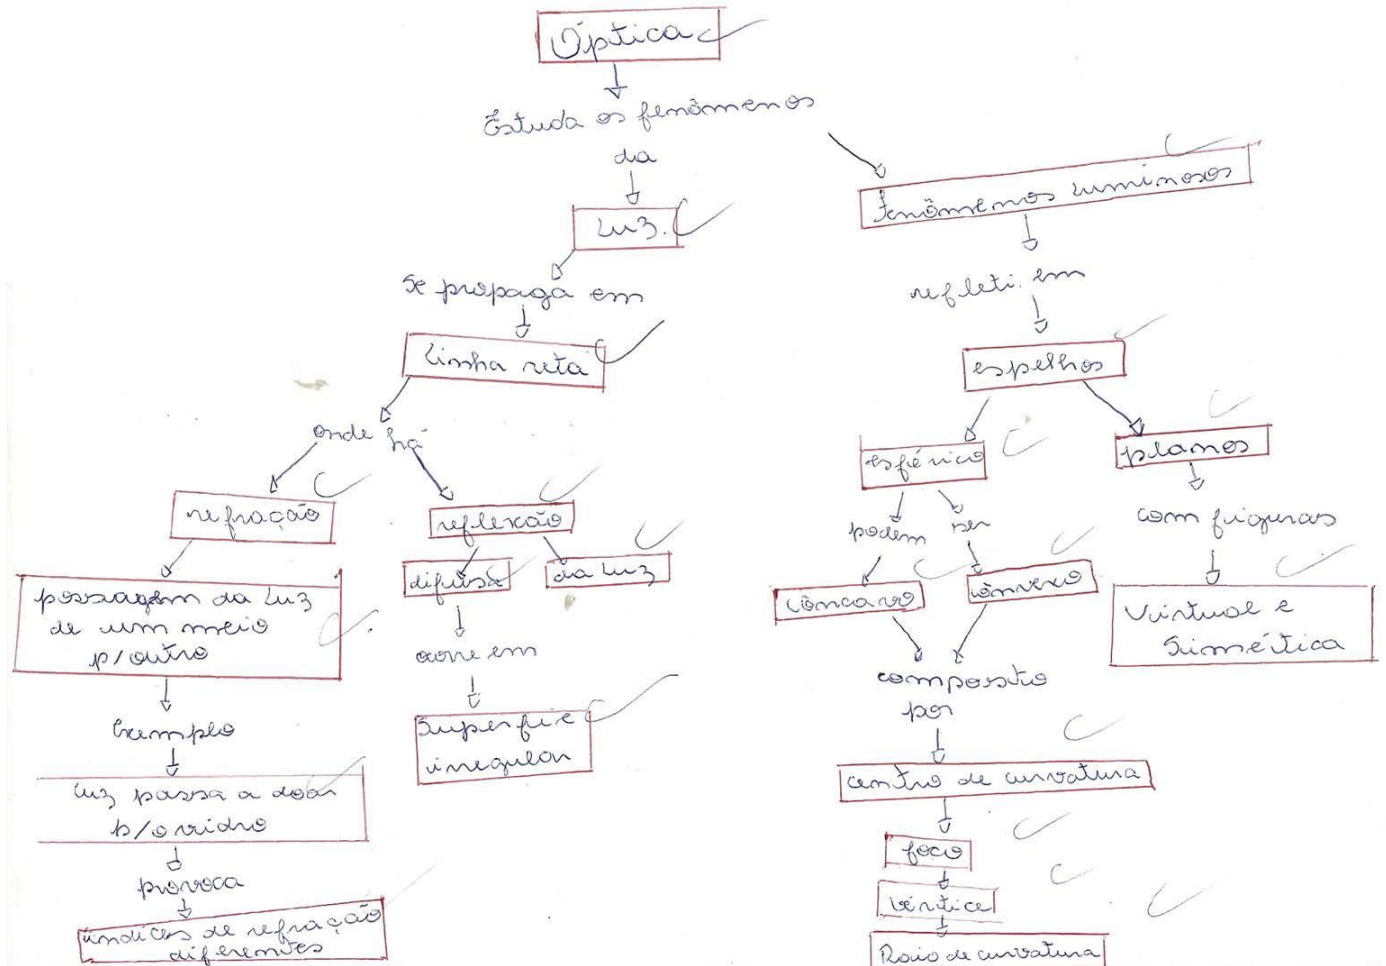 Óptica
Estuda os fenômenos
da
Luz.
Se propaga em
Linha reta
onde há
refração
passagem da Luz
de um meio
p/outro
Exemplo
Luz passa a doar
p/o vidro
provoca
índices de refração
diferentes
reflexão
difusa
da Luz
ocorre em
Superfície
irregular
Fenômenos Luminosos
refleti. em
espelhos
esférico
podem
ser
côncavo
cônvexo
composto
por
centro de curvatura
foco
vértice
Raio de curvatura
planos
com figuras
Virtual e
Simétrica